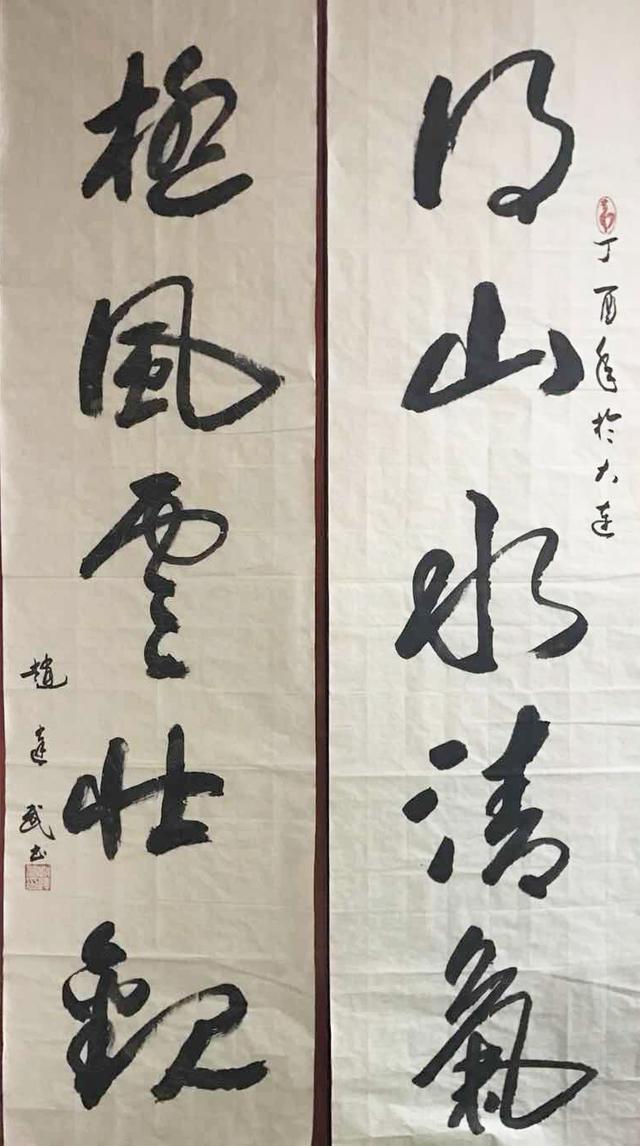 得山水清氣
丁酉年於大連
極風雲壯觀
趙達武書